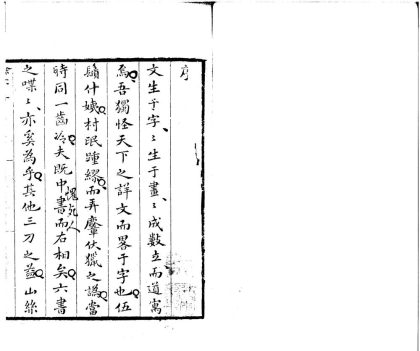 序
文生于字〻生于畫〻成數立而道寓
焉吾獨怪天下之詳文而畧于字也伍
鬚什姨村氓踵繆而弄麞伏獵之譌當
時同一齒冷夫既中書而右相矣六書
愧死人
之喋〻亦奚為乎其他三刀之益山絲